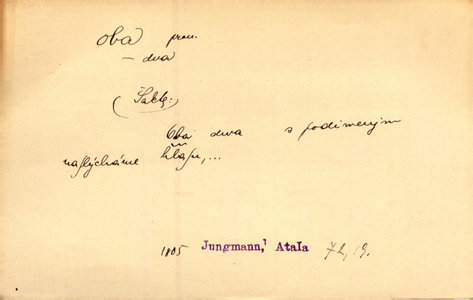 oba pron.
— dva
(Šakt.)
Oba dwa s podiweným
naslýcháme hlasu,...
1805 Jungmann,¹ Atala 72, 19.